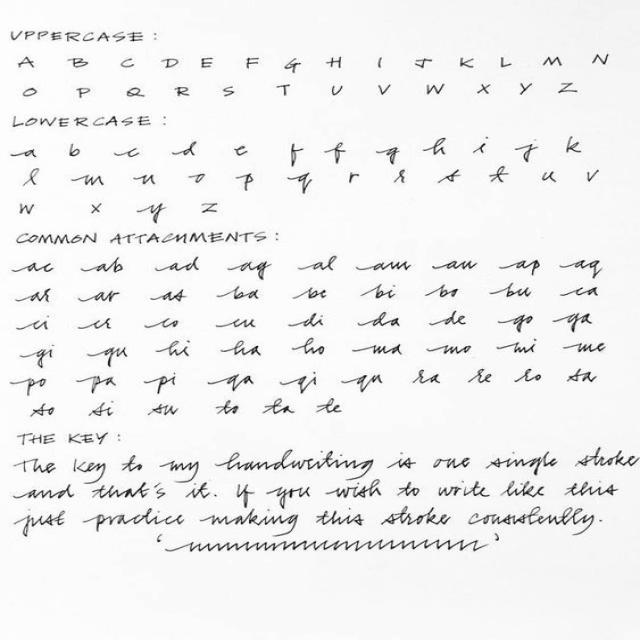 UPPERCASE :
A B C D E F G H I J K L M N
O P Q R S T U V W X Y Z
LOWERCASE :
a b c d e f f g h i j k
l m n o p q r r s t u v
w x y z
COMMON ATTACHMENTS :
ac ab ad ag al am an ap aq
ar ar as ba be bi bo bu ca
ci cr co cu di da de go ga
gi gu hi ha ho ma mo mi me
po pa pi qa qi qu ra re ro sa
so si su to ta te
THE KEY :
The key to my handwriting is one single stroke
and that's it. If you wish to write like this
just practice making this stroke consistently.